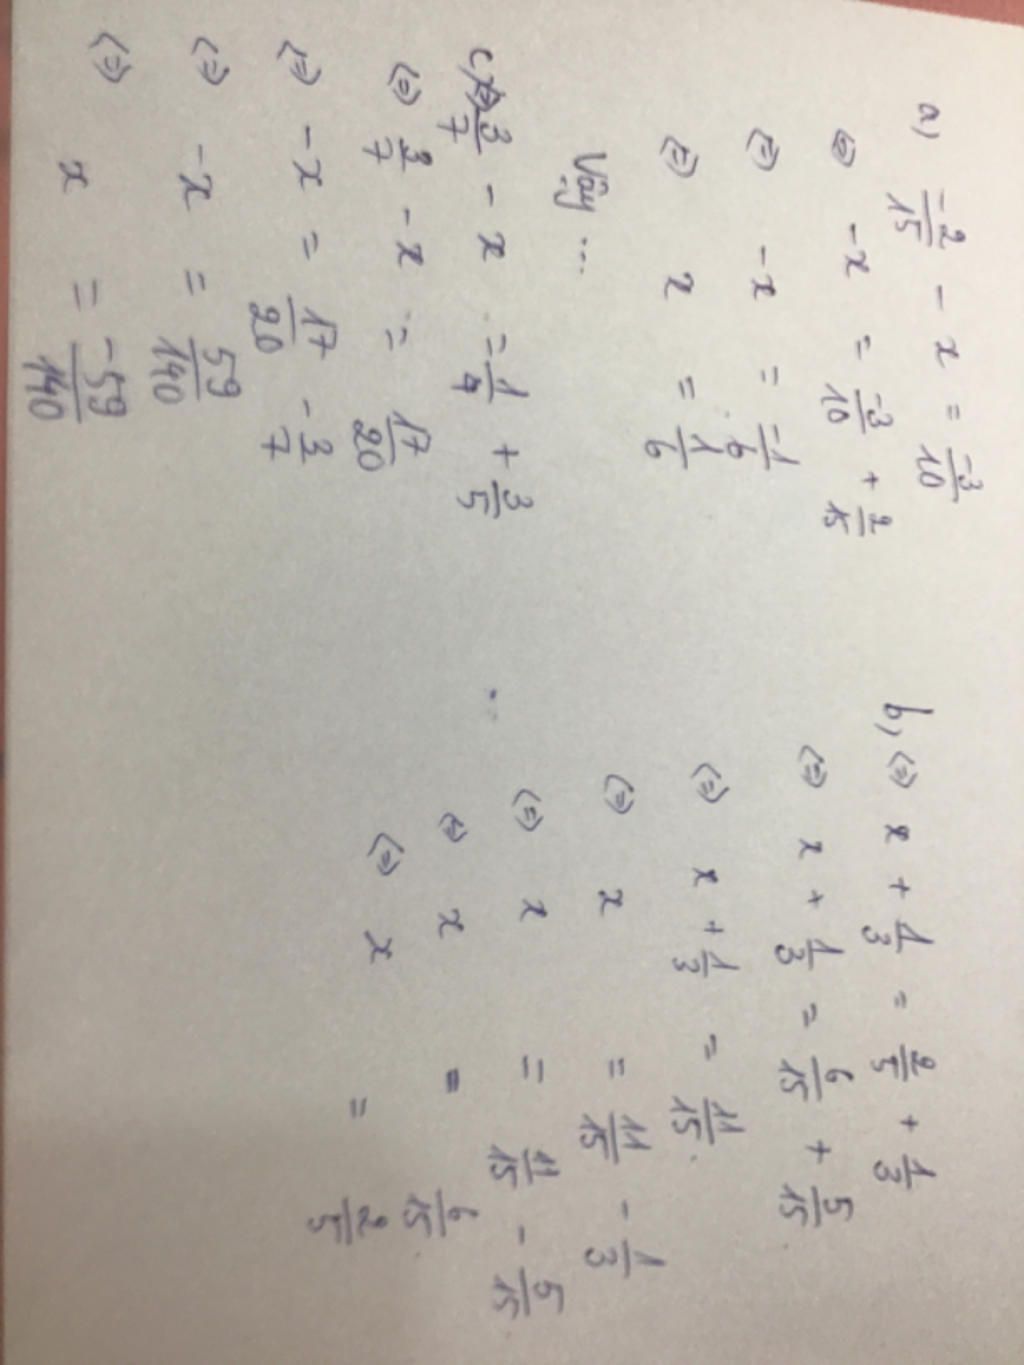 a) -2/15 - x = -3/10
⇔ -x = -3/10 + 2/15
⇔ -x = -1/6
⇔ x = 1/6
Vậy ...
c, 3/7 - x = 1/4 + 3/5
⇔ 3/7 - x = 17/20
⇔ -x = 17/20 - 3/7
⇔ -x = 59/140
⇔ x = -59/140
b, ⇔ x + 1/3 = 2/5 + 1/3
⇔ x + 1/3 = 6/15 + 5/15
⇔ x + 1/3 = 11/15
⇔ x = 11/15 - 1/3
⇔ x = 11/15 - 5/15
⇔ x = 6/15
⇔ x = 2/5